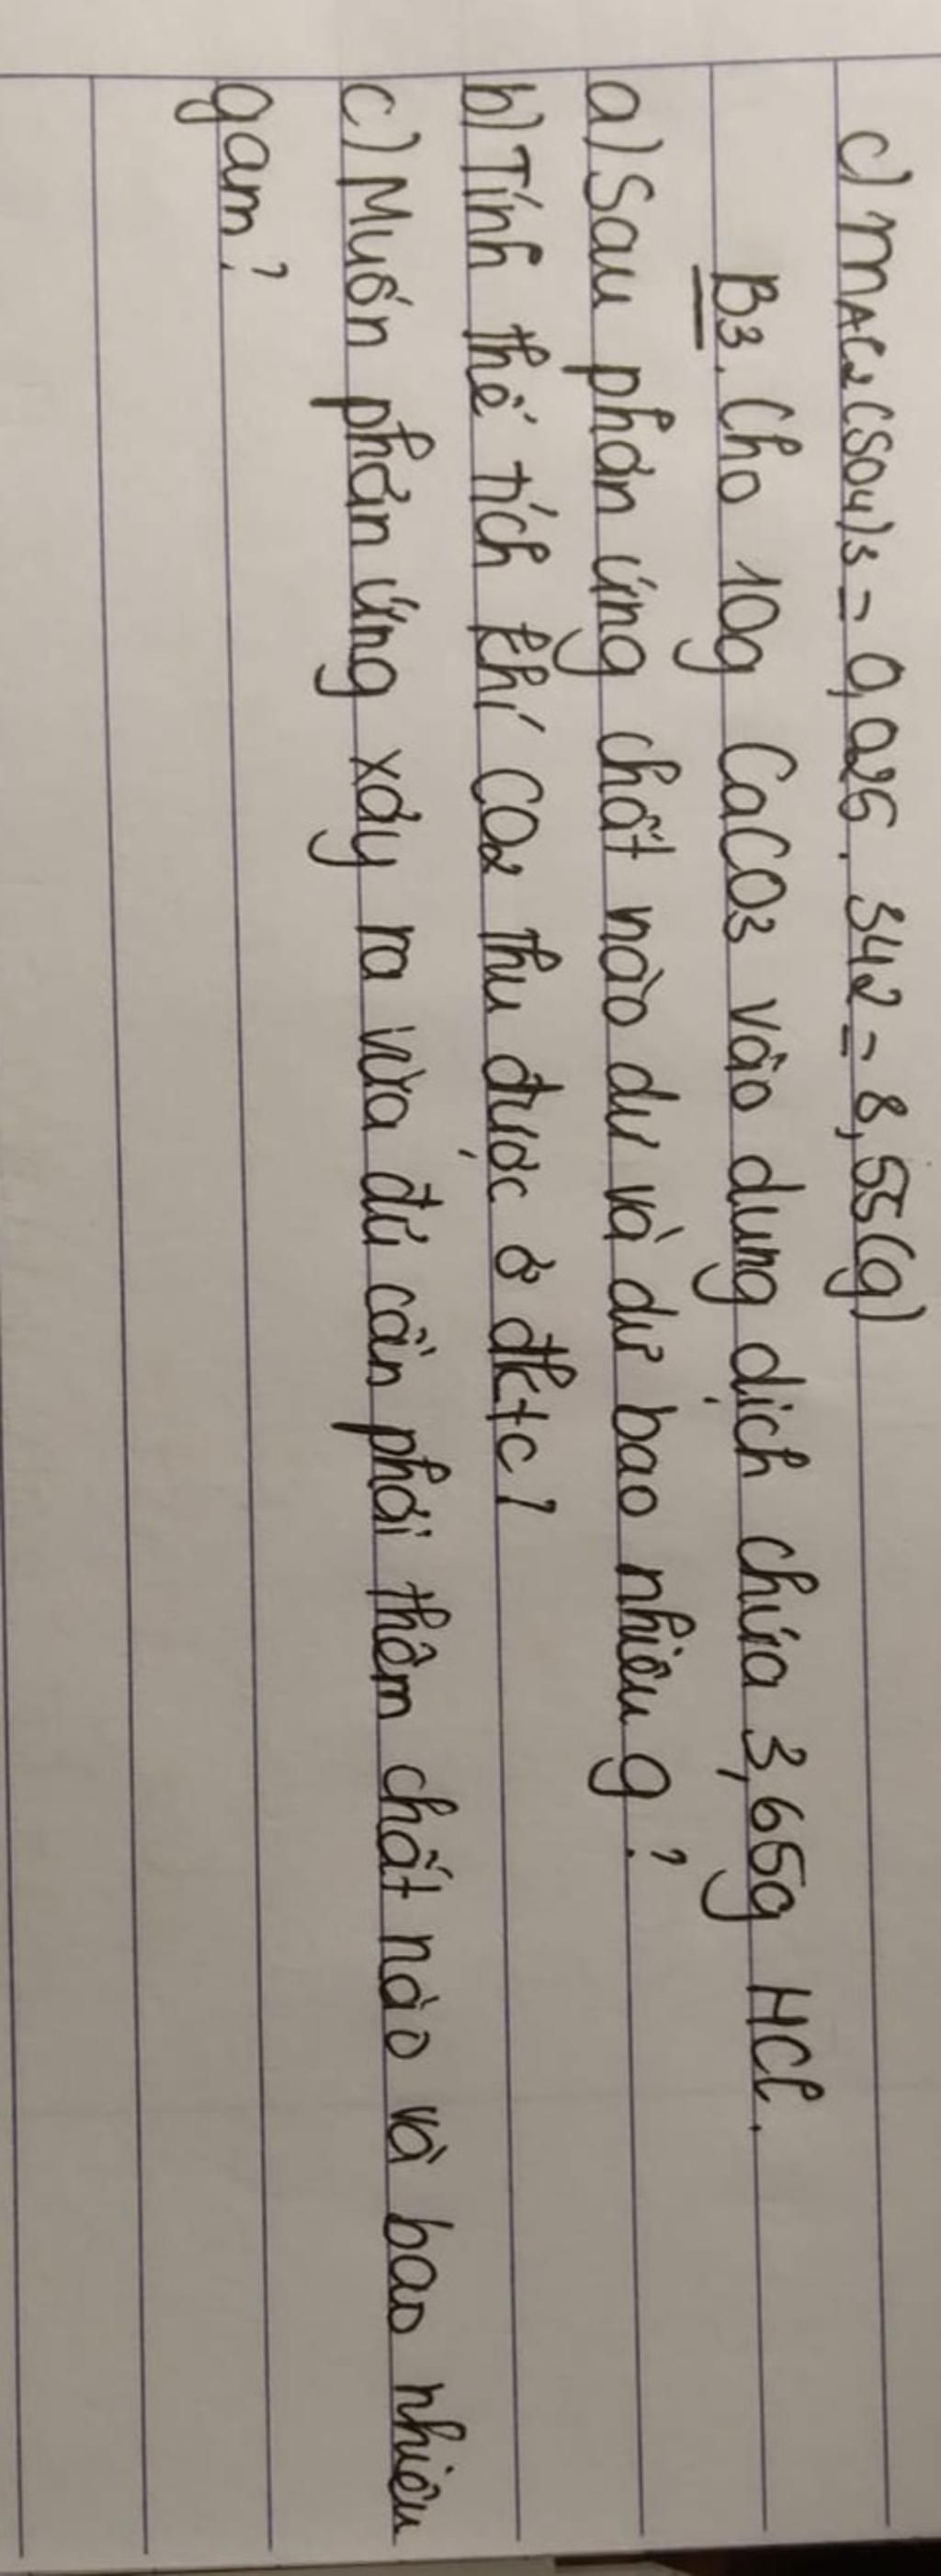 c) mAl2(SO4)3 = 0,025 . 342 = 8,55 (g)
B3. Cho 10g CaCO3 vào dung dịch chứa 3,65g HCl.
a) Sau phản ứng chất nào dư và dư bao nhiêu g?
b) Tính thể tích khí CO2 thu được ở đktc?
c) Muốn phản ứng xảy ra vừa đủ cần phải thêm chất nào và bao nhiêu
gam?